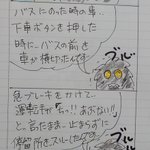 バスにのった時の事、
下車ボタンを押した
時に、バスの前を
車が横切ったんです
ブルッ
急ブレーキをかけて、
運転手が「ちっ!!あぶない!!」
と、言たまま、止まらずに
ブルッ